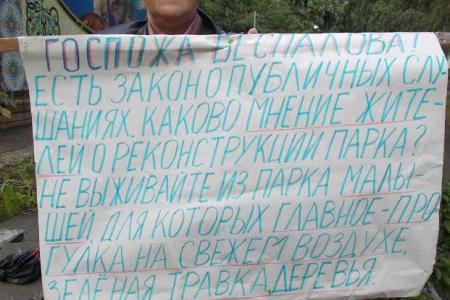 ГОСПОЖА БЕСПАЛОВА!
ЕСТЬ ЗАКОН О ПУБЛИЧНЫХ СЛУ-
ШАНИЯХ. КАКОВО МНЕНИЕ ЖИТЕ-
ЛЕЙ О РЕКОНСТРУКЦИИ ПАРКА?
НЕ ВЫЖИВАЙТЕ ИЗ ПАРКА МАЛЫ-
ШЕЙ ДЛЯ КОТОРЫХ ГЛАВНОЕ-ПРО
ГУЛКА НА СВЕЖЕМ ВОЗДУХЕ,
ЗЕЛЁНАЯ ТРАВКА, ДЕРЕВЬЯ.